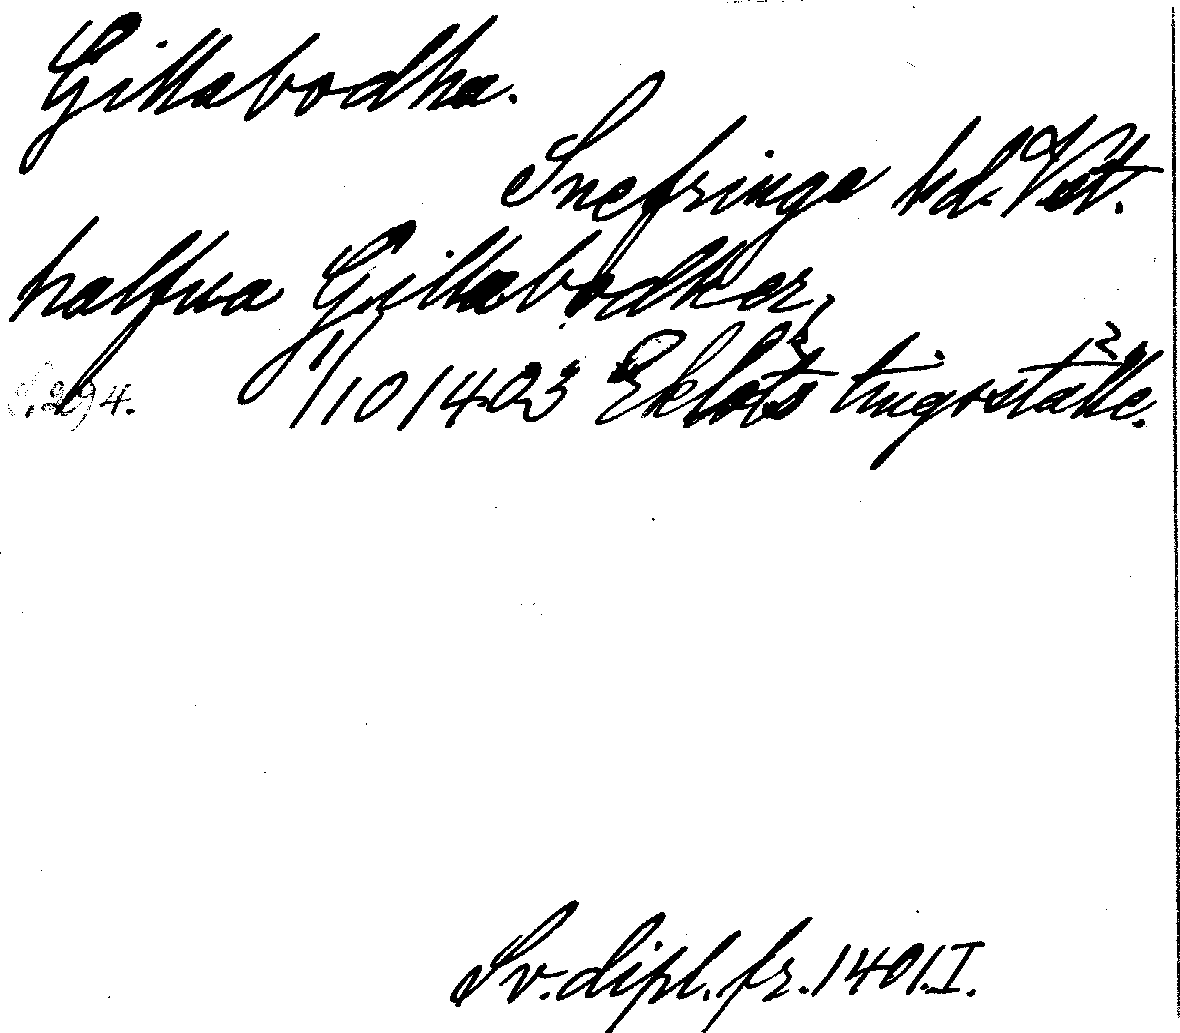 Gillabodha.
Snefringe hd. Vst.
halfua Gillabodher,
S. 294. 1/10 1403 Eklöts tingsställe.
Sv. dipl. fr. 1401. I.